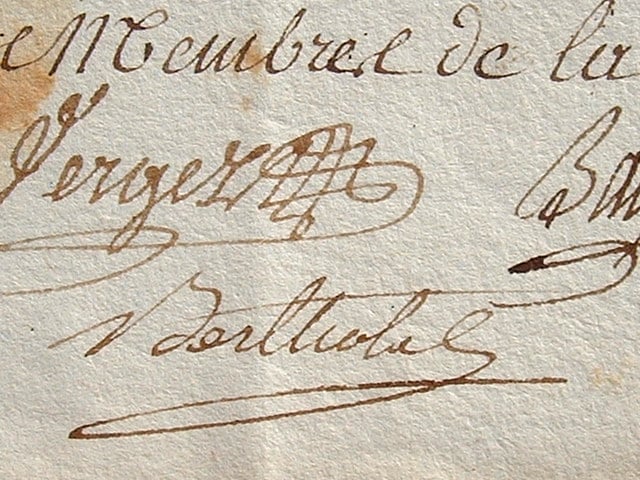 Membres de la
Verger Ba
Bertholet